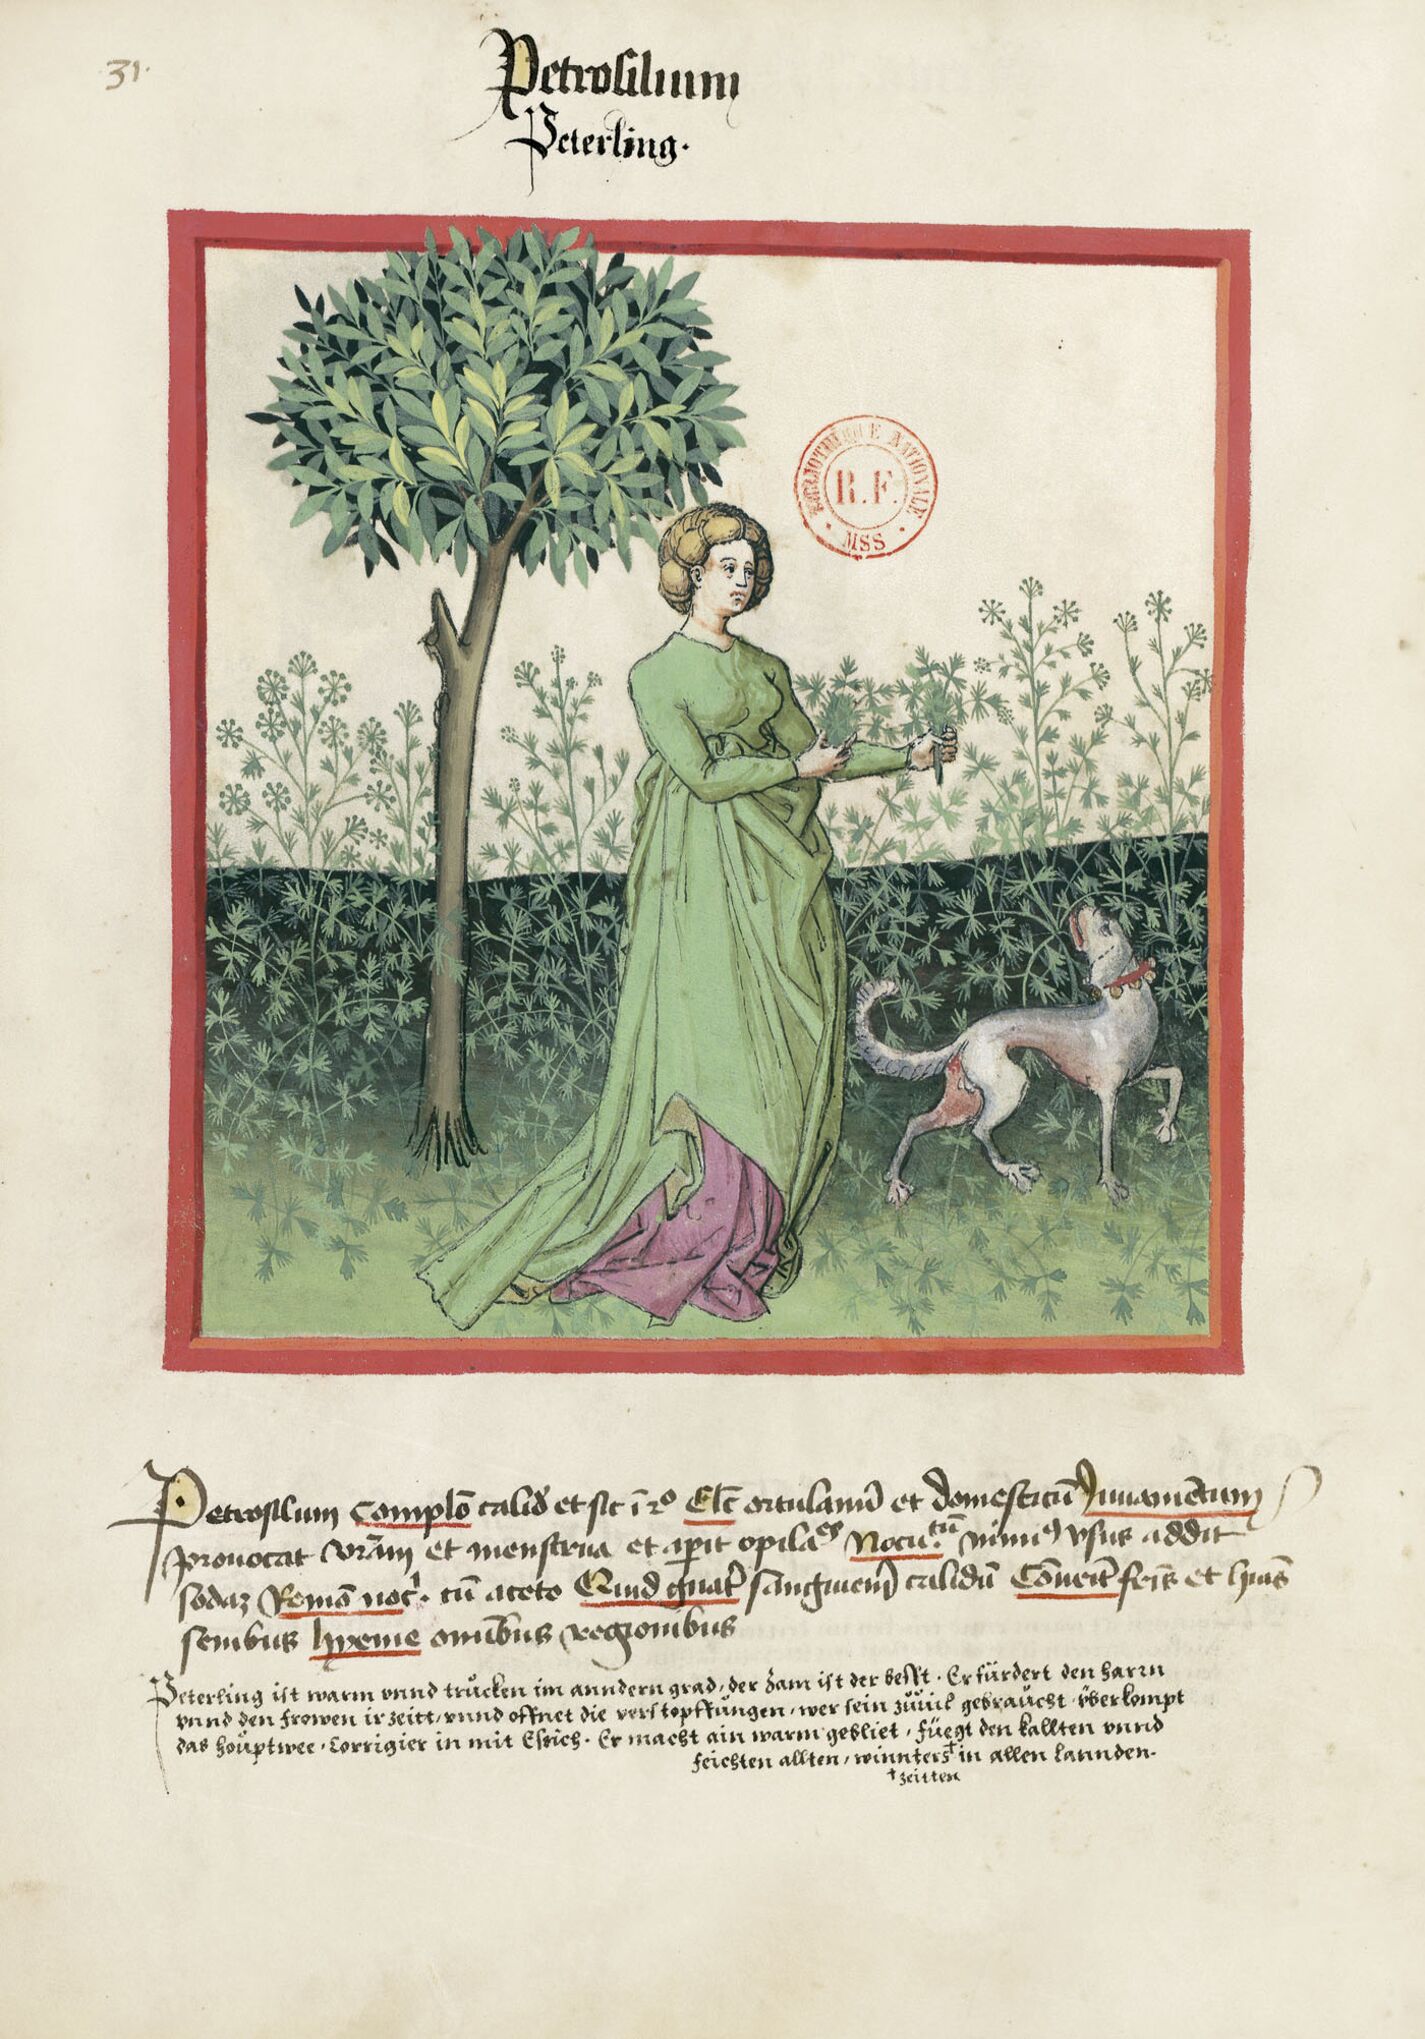 31.
Petrosilium
Peterling.
BIBLIOTHÈQUE NATIONALE
R.F.
MSS
Petrosilum Complō calid̄ et sic ī 2º Elc̄ ortulanū et domesticū Iuuamētum
prouocat vrām et menstrua et aperit opilaes Nocu.tū nimiꝰ vsus addit
sodaz Remō noct. cū aceto Quid gnāt sanguinem calidū Cōueīt
senibus hyeme omībus regionibus
Peterling ist warm vnnd trucken im anndern grad, der Zam ist der besst. Er fürdert den harrn
vnnd den frowen ir zeitt, vnnd offnet die verstopffungen, wer sein züuil gebraucht, überkompt
das houptwee. Corrigier in mit Essich. Er macht ain warm gebliet, füegt den kallten vnnd
feichten allten, winnters† in allen lannden.
† zeitten